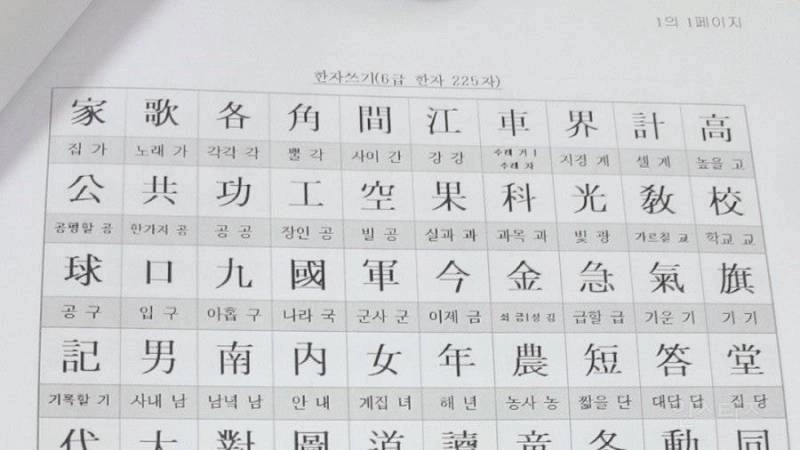 1의 1페이지
한자쓰기(6급 한자 225자)
家 歌 各 角 間 江 車 界 計 高
집 가 노래 가 각각 각 뿔 각 사이 간 강 강 수레 거 | 수레 차 지경 계 셀 계 높을 고
公 共 功 工 空 果 科 光 敎 校
공평할 공 한가지 공 공 공 장인 공 빌 공 실과 과 과목 과 빛 광 가르칠 교 학교 교
球 口 九 國 軍 今 金 急 氣 旗
공 구 입 구 아홉 구 나라 국 군사 군 이제 금 쇠 금|성 김 급할 급 기운 기 기 기
記 男 南 內 女 年 農 短 答 堂
기록할 기 사내 남 남녘 남 안 내 계집 녀 해 년 농사 농 짧을 단 대답 답 집 당
代 大 對 圖 道 讀 童 冬 動 同